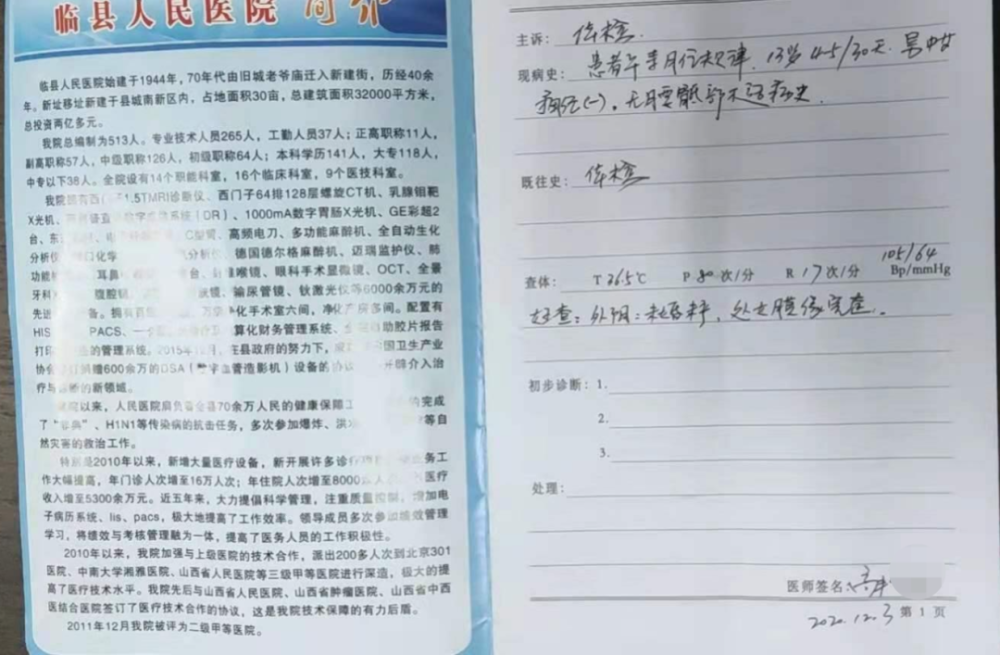 临县人民医院 简介
临县人民医院始建于1944年，70年代由旧城老爷庙迁入新建街，历经40余
年。新址移址新建于县城南新区内，占地面积30亩，总建筑面积32000平方米，
总投资两亿多元。
我院总编制为513人。专业技术人员265人，工勤人员37人；正高职称11人，
副高职称57人，中级职称126人，初级职称64人；本科学历141人，大专118人，
中专以下38人。全院设有14个职能科室，16个临床科室，9个医技科室。
我院拥有西门子1.5TMRI诊断仪、西门子64排128层螺旋CT机、乳腺钼靶
X光机、数字系统（DR）、1000mA数字胃肠X光机、GE彩超2
台、C型臂、高频电刀、多功能麻醉机、全自动生化
分析仪、化学、德国德尔格麻醉机、迈瑞监护仪、肺
功能、耳鼻喉镜、眼科手术显微镜、OCT、全景
牙科、腹腔镜、输尿管镜、钬激光仪等6000余万元的
先进设备。拥有净化手术室六间，净化产房多间。配置有
HIS、PACS、算化财务管理系统、自助胶片报告
打印的管理系统。2015年12月，在县政府的努力下，国卫生产业
协会捐赠600余万的DSA（数字血管造影机）设备的协议，开辟介入治
疗与诊断的新领域。
院以来，人民医院肩负着全县70余万人民的健康保障工作，完成
了“非典”、H1N1等传染病的抗击任务，多次参加爆炸、洪水等自
然灾害的救治工作。
特别是2010年以来，新增大量医疗设备，新开展许多诊疗项目，业务工
作大幅提高，年门诊人次增至16万人次；年住院人次增至8000人次，医疗
收入增至5300余万元。近五年来，大力提倡科学管理，注重质量控制，增加电
子病历系统、lis、pacs，极大地提高了工作效率。领导成员多次参加绩效管理
学习，将绩效与考核管理融为一体，提高了医务人员的工作积极性。
2010年以来，我院加强与上级医院的技术合作，派出200多人次到北京301
医院、中南大学湘雅医院、山西省人民医院等三级甲等医院进行深造，极大的提
高了医疗技术水平。我院先后与山西省人民医院、山西省肿瘤医院、山西省中西
医结合医院签订了医疗技术合作的协议，这是我院技术保障的有力后盾。
2011年12月我院被评为二级甲等医院。
主诉：体检.
现病史：患者平素月经规律，13岁 4-5/30天.
痛经(一)，无腰骶部不适病史.
既往史：体检
查体： T 36.5℃ P 80次/分 R 17次/分 105/64 Bp/mmHg
妇查：外阴：未婚未孕，处女膜缘完整.
初步诊断：1.
2.
3.
处理：
医师签名：
2020.12.3 第 1 页